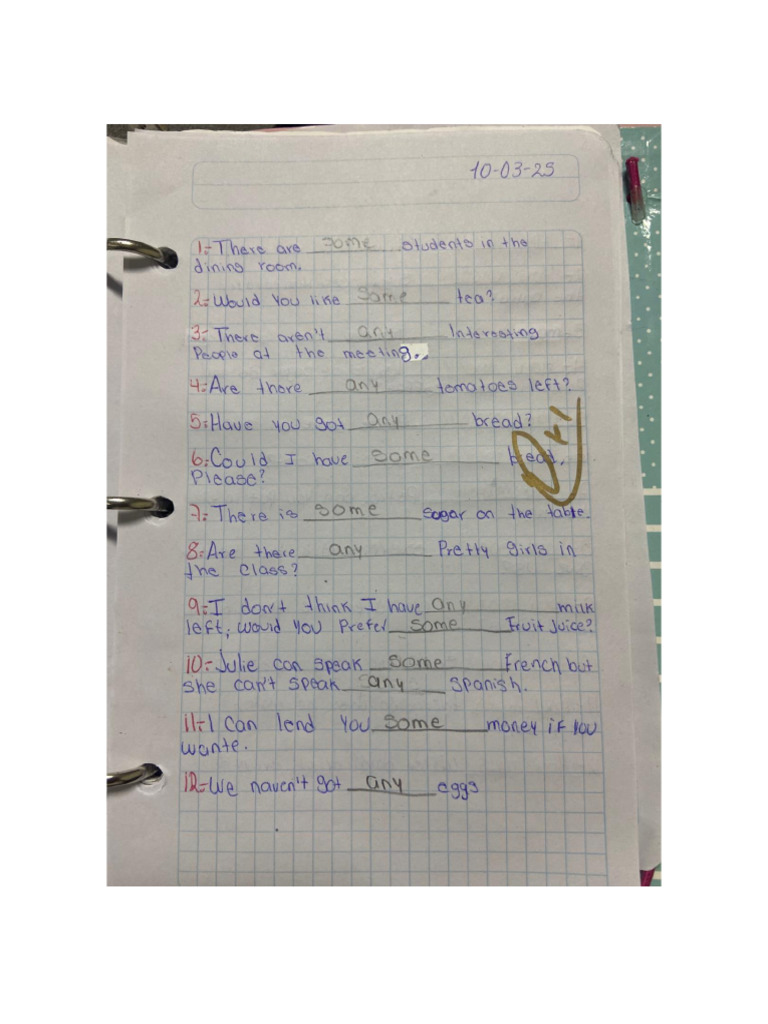 10-03-25
1.- There are some students in the
dining room.
2.- Would You like some tea?
3.- There aren't any Interesting
People at the meeting.
4.- Are there any tomatoes left?
5.- Have you got any bread?
6.- Could I have some
Please?
7.- There is some sogar on the table.
8.- Are there any Pretty girls in
the class?
9.- I don't think I have any milk
left, would you Prefer some Fruit Juice?
10.- Julie can speak some French but
she can't speak any Spanish.
11.- I Can lend You some money if You
wante.
12.- We haven't got any eggs